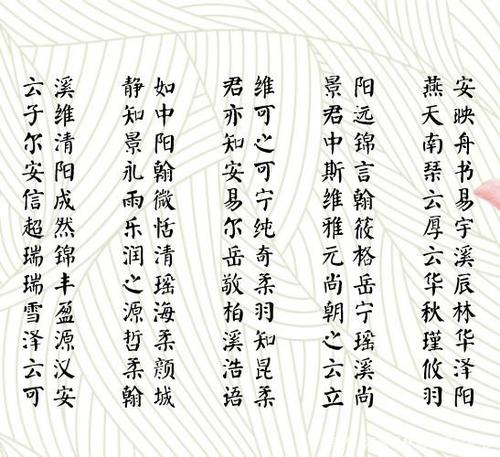 安映舟书易宇溪辰林华泽阳
燕天南琹云厚云华秋瑾攸羽
阳远锦言翰筱格岳宁瑶溪尚
景君中斯维雅元尚朝之云立
维可之可宁纯奇柔羽知昆柔
君亦知安易尔岳敬柏溪浩语
如中阳翰微恬清瑶海柔颜城
静知景永雨乐润之源哲柔翰
溪维清阳成然锦丰盈源汉安
云子尔安信超瑞瑞雪泽云可